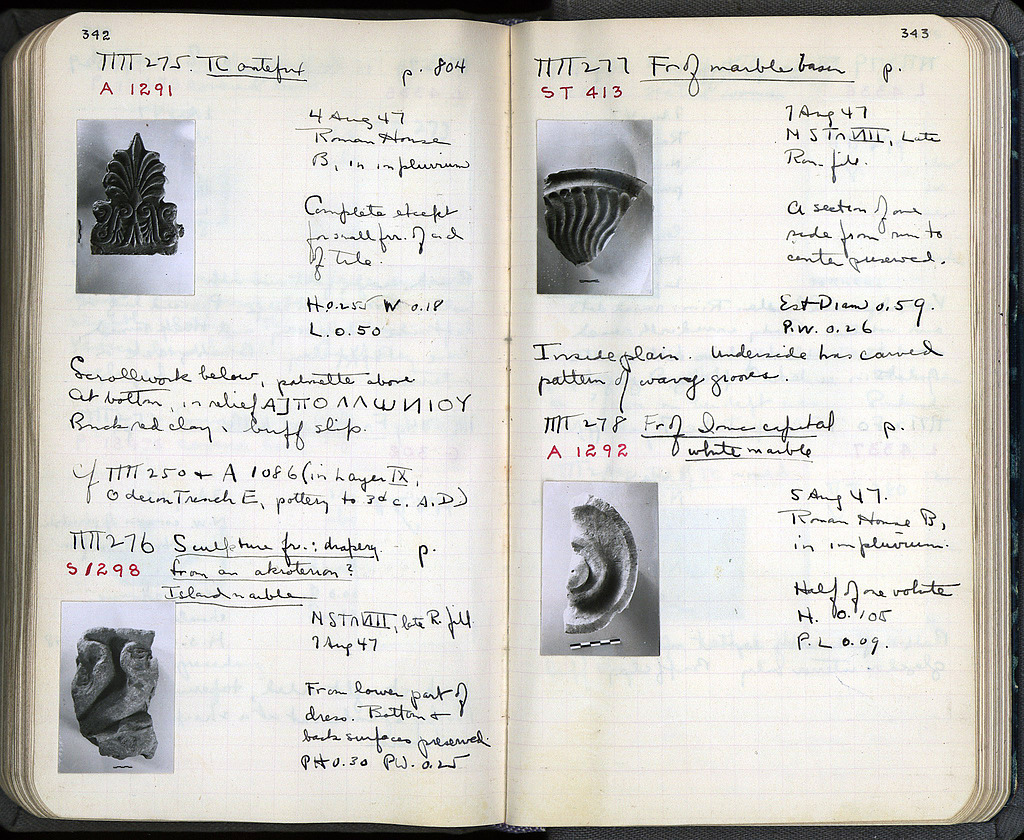 342
ΠΠ 275. TC antefix p. 804
A 1291
4 Aug 47
Roman House
B, in impluvium
Complete except
for small fr. of end
of tile.
H 0.255 W 0.18
L. 0.50
Scrollwork below, palmette above
At bottom, in relief ΑΠΟΛΛΩΝΙΟΥ
Brick red clay buff slip.
cf ΠΠ 250 + A 1086 (in Layer IX,
Odeon Trench E, pottery to 3d c. A.D.)
ΠΠ 276 Sculpture fr.: drapery p.
S 1298 from an akroterion?
Island marble
N STr VIII, late R. fill
7 Aug 47
From lower part of
dress. Bottom +
back surfaces preserved.
PH 0.30 PW. 0.25
343
ΠΠ 277 Fr of marble basin p.
ST 413
7 Aug 47
N STr VIII, Late
Rom. fill.
A section of one
side from rim to
center preserved.
Est Diam 0.59.
P.W. 0.26
Inside plain. Underside has carved
pattern of wavy grooves.
ΠΠ 278 Fr of Ionic capital p.
A 1292 white marble
5 Aug 47.
Roman House B,
in impluvium.
Half of one volute
H. 0.105
P.L 0.09.